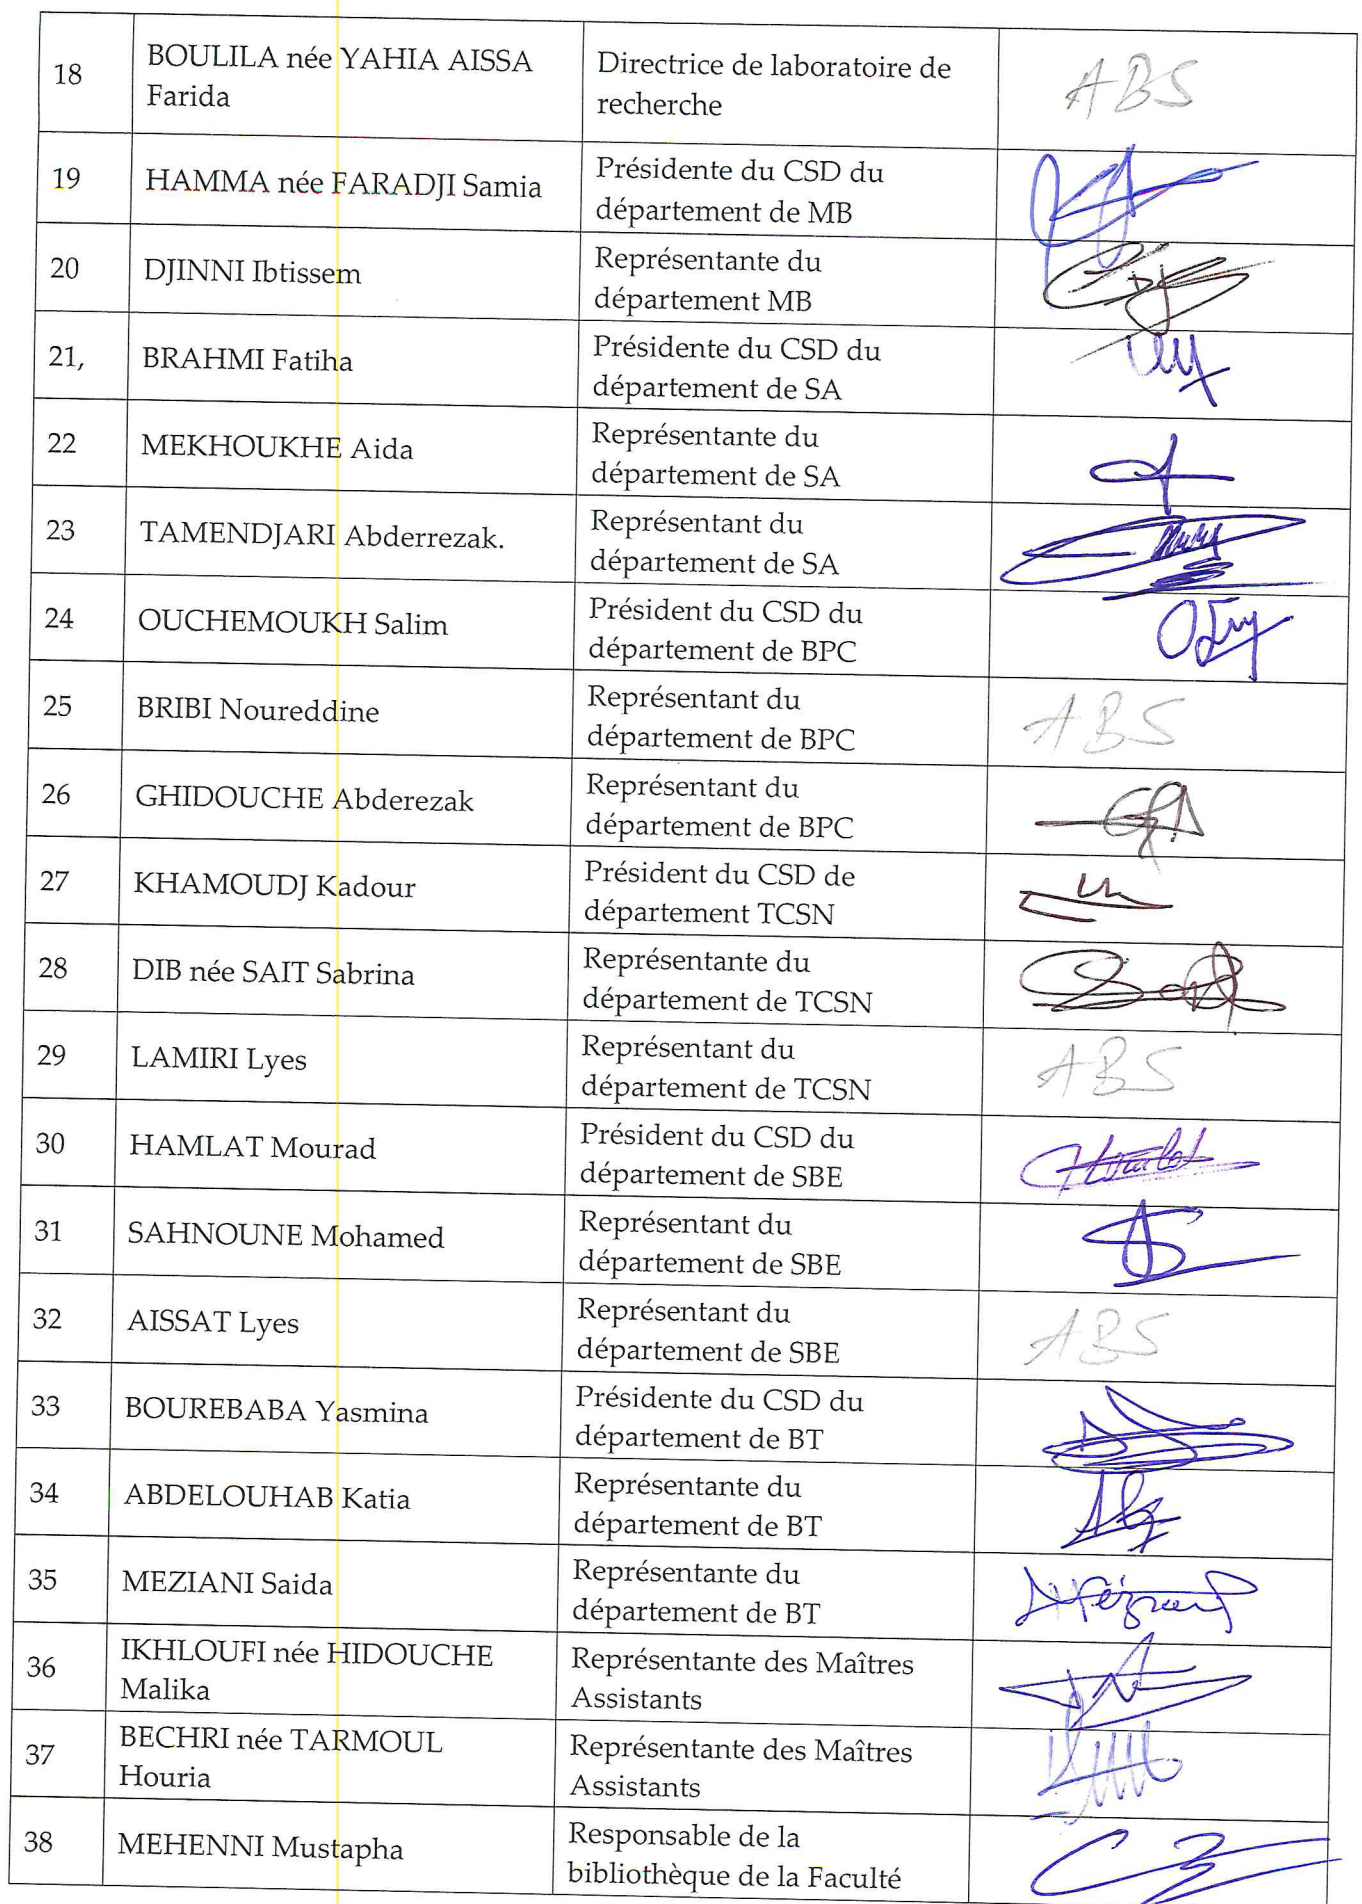 18
BOULILA née YAHIA AISSA
Farida
Directrice de laboratoire de
recherche
ABS
19
HAMMA née FARADJI Samia
Présidente du CSD du
département de MB
20
DJINNI Ibtissem
Représentante du
département MB
21,
BRAHMI Fatiha
Présidente du CSD du
département de SA
22
MEKHOUKHE Aida
Représentante du
département de SA
23
TAMENDJARI Abderrezak.
Représentant du
département de SA
24
OUCHEMOUKH Salim
Président du CSD du
département de BPC
25
BRIBI Noureddine
Représentant du
département de BPC
ABS
26
GHIDOUCHE Abderezak
Représentant du
département de BPC
27
KHAMOUDJ Kadour
Président du CSD de
département TCSN
28
DIB née SAIT Sabrina
Représentante du
département de TCSN
29
LAMIRI Lyes
Représentant du
département de TCSN
ABS
30
HAMLAT Mourad
Président du CSD du
département de SBE
31
SAHNOUNE Mohamed
Représentant du
département de SBE
32
AISSAT Lyes
Représentant du
département de SBE
ABS
33
BOUREBABA Yasmina
Présidente du CSD du
département de BT
34
ABDELOUHAB Katia
Représentante du
département de BT
35
MEZIANI Saida
Représentante du
département de BT
36
IKHLOUFI née HIDOUCHE
Malika
Représentante des Maîtres
Assistants
37
BECHRI née TARMOUL
Houria
Représentante des Maîtres
Assistants
38
MEHENNI Mustapha
Responsable de la
bibliothèque de la Faculté